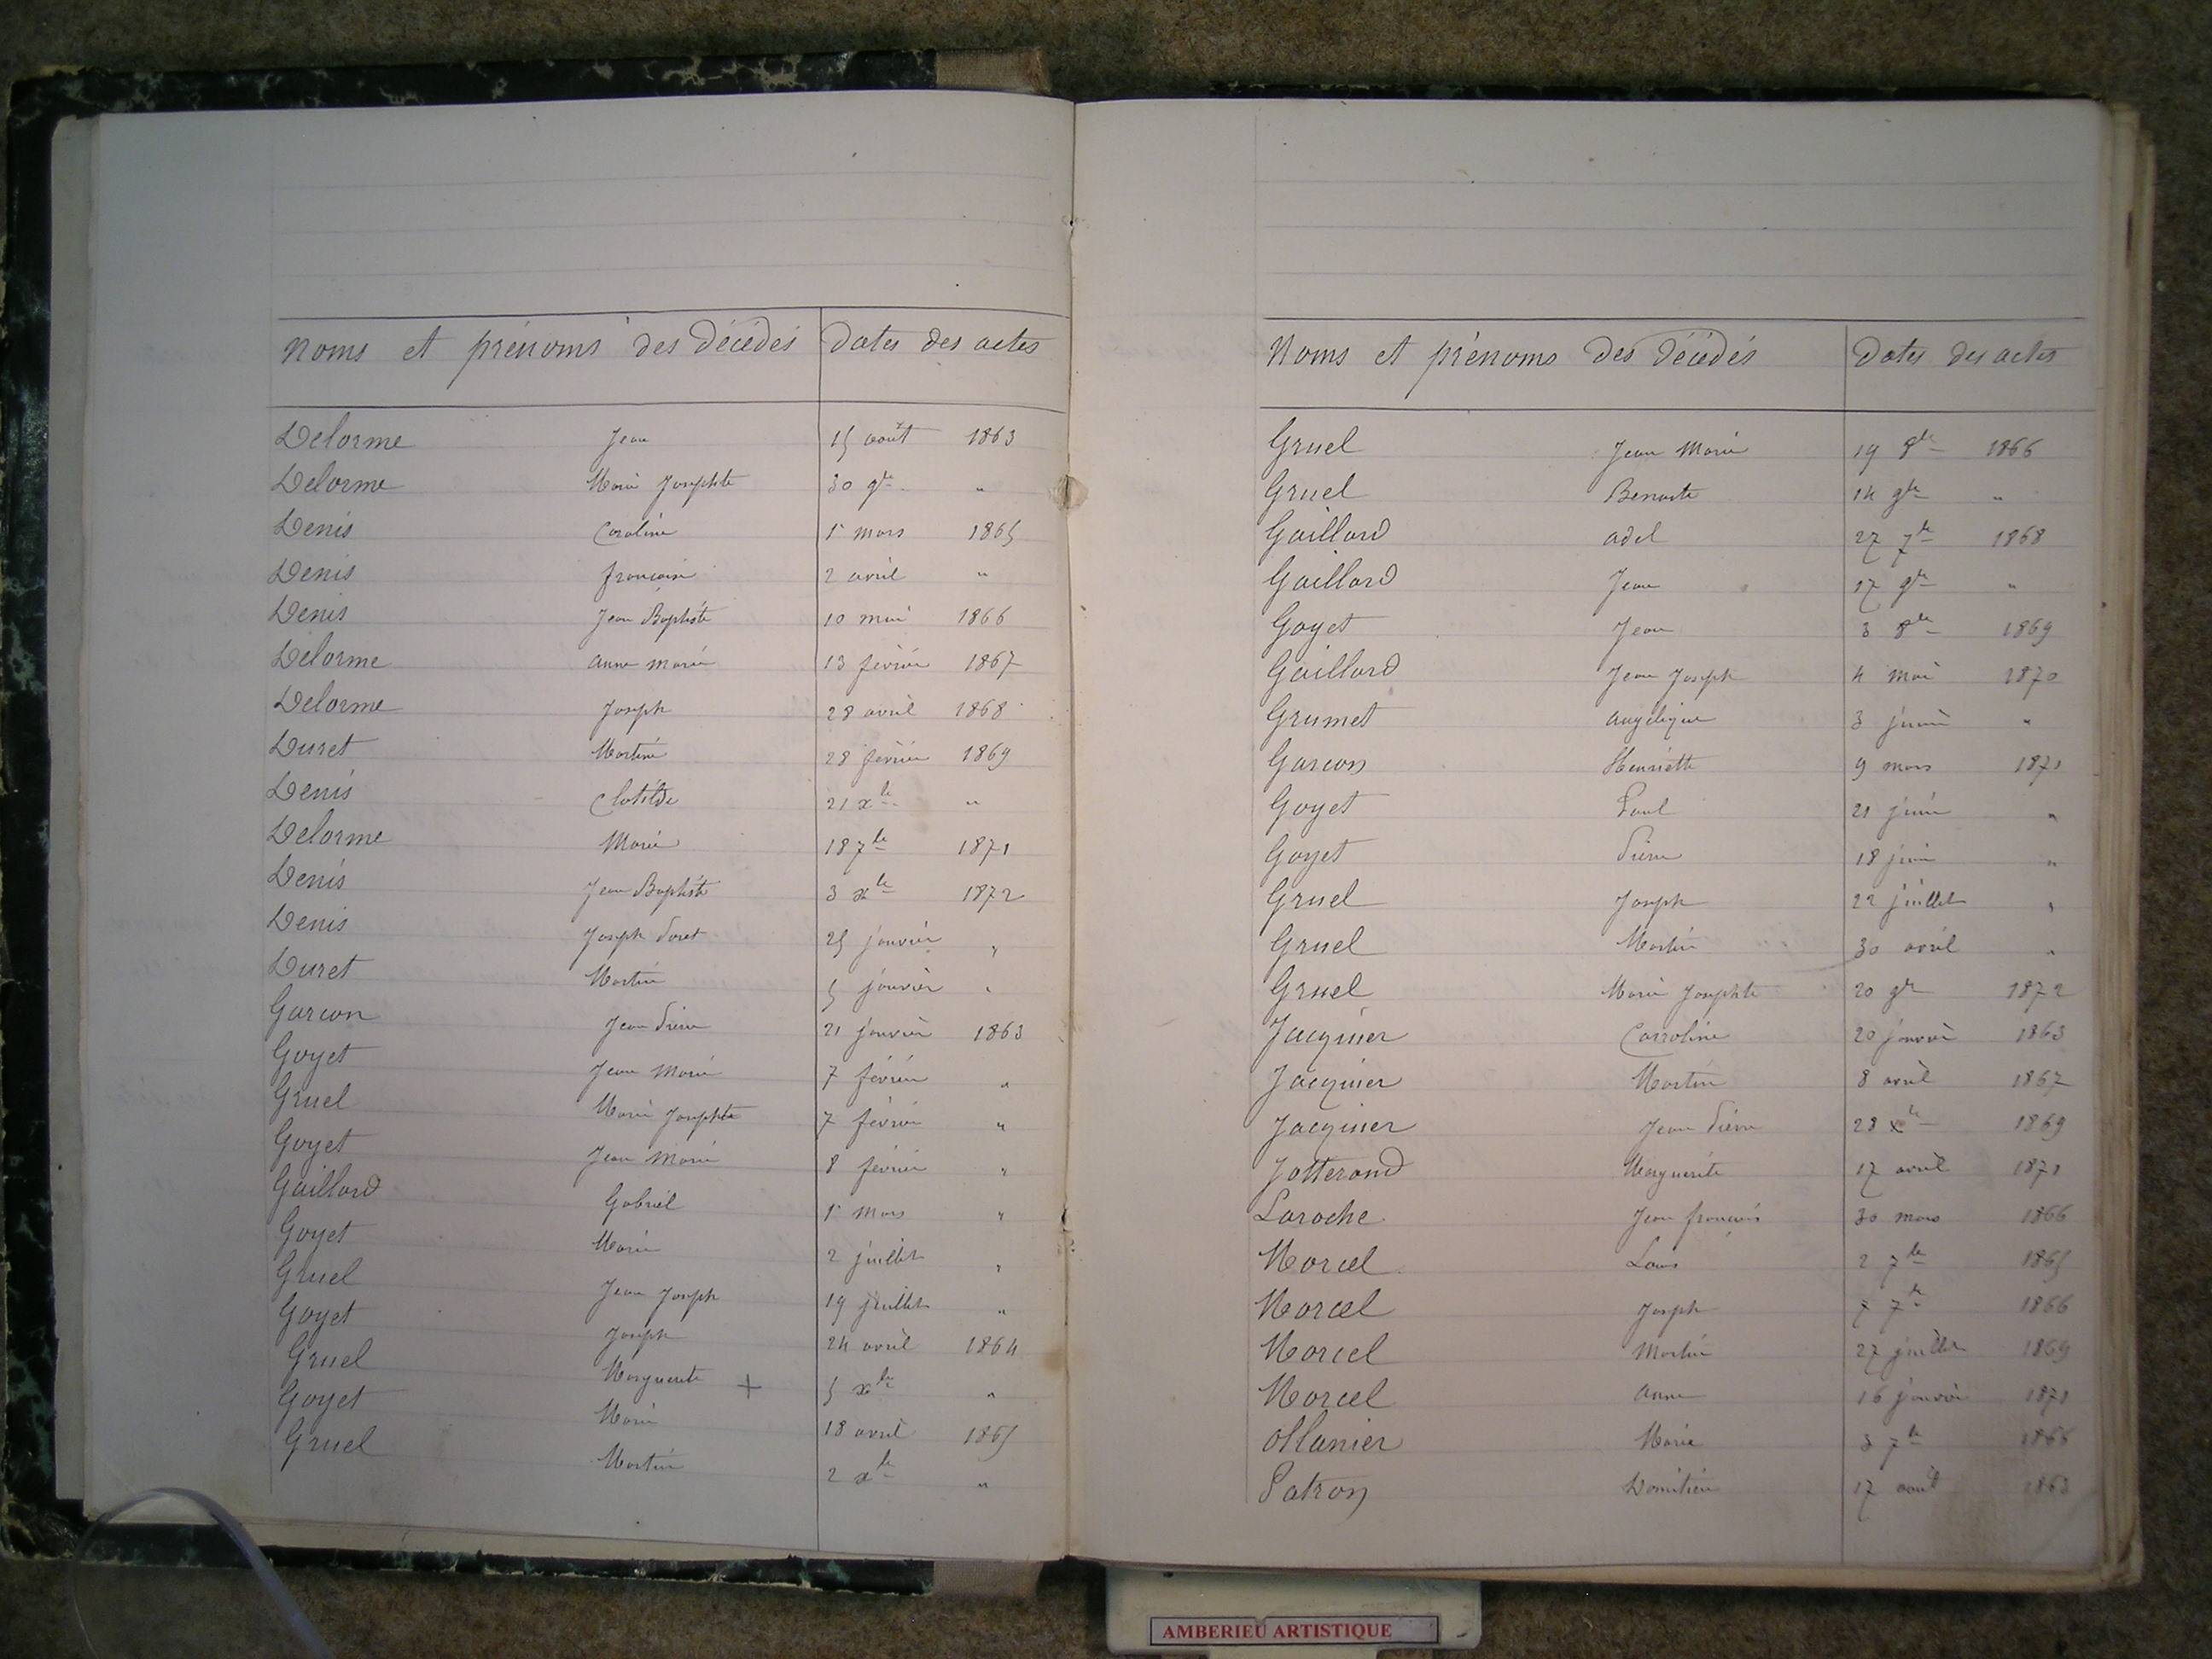 Noms et prénoms des décédés Dates des actes
Delorme Jean 15 août 1863
Delorme Marie Josephte 30 9bre "
Denis Caroline 1r mars 1865
Denis françoise 2 avril "
Denis Jean Baptiste 10 mai 1866
Delorme anne marie 13 février 1867
Delorme Joseph 28 avril 1868
Duret Martine 28 février 1869
Denis Clotilde 21 xbre "
Delorme Marie 18 7bre 1871
Denis Jean Baptiste 3 xbre 1872
Denis Joseph 25 janvier "
Duret Martin 5 janvier "
Garcon Jean Pierre 21 janvier 1863
Goyet Jean Marie 7 février "
Gruel Marie Josephte 7 février "
Goyet Jean Marie 8 février "
Gaillard Gabriel 1r mars "
Goyet Marie 2 juillet "
Gruel Jean Joseph 19 juillet "
Goyet Joseph 24 avril 1864
Gruel Marguerite + 5 xbre "
Goyet Marie 18 avril 1865
Gruel Martin 2 xbre "
Noms et prénoms des décédés Dates des actes
Gruel Jean Marie 19 8bre 1866
Gruel Benoite 14 9bre "
Gaillard adel 27 7bre 1868
Gaillard Jean 17 9bre "
Goyet Jean 3 8bre 1869
Gaillard Jean Joseph 4 mai 1870
Grumet angélique 3 "
Garcon Henriette 9 mars 1871
Goyet Paul 21 juin "
Goyet Pierre 18 juin "
Gruel Joseph 22 juillet "
Gruel Martin 30 avril "
Gruel Marie Josephte 20 9bre 1872
Jacquier Carroline 20 janvier 1863
Jacquier Martin 8 avril 1867
Jacquier Jean Pierre 28 xbre 1869
Jotterand Marguerite 17 avril 1871
Laroche Jean françois 30 mars 1866
Marcel Louis 2 7bre 1865
Marcel Joseph 7 7bre 1866
Marcel Martin 27 juillet 1869
Marcel anne 16 janvier 1871
Ollanier Marie 3 7bre 1866
Patron Domitien 17 août 1863
AMBERIEU ARTISTIQUE